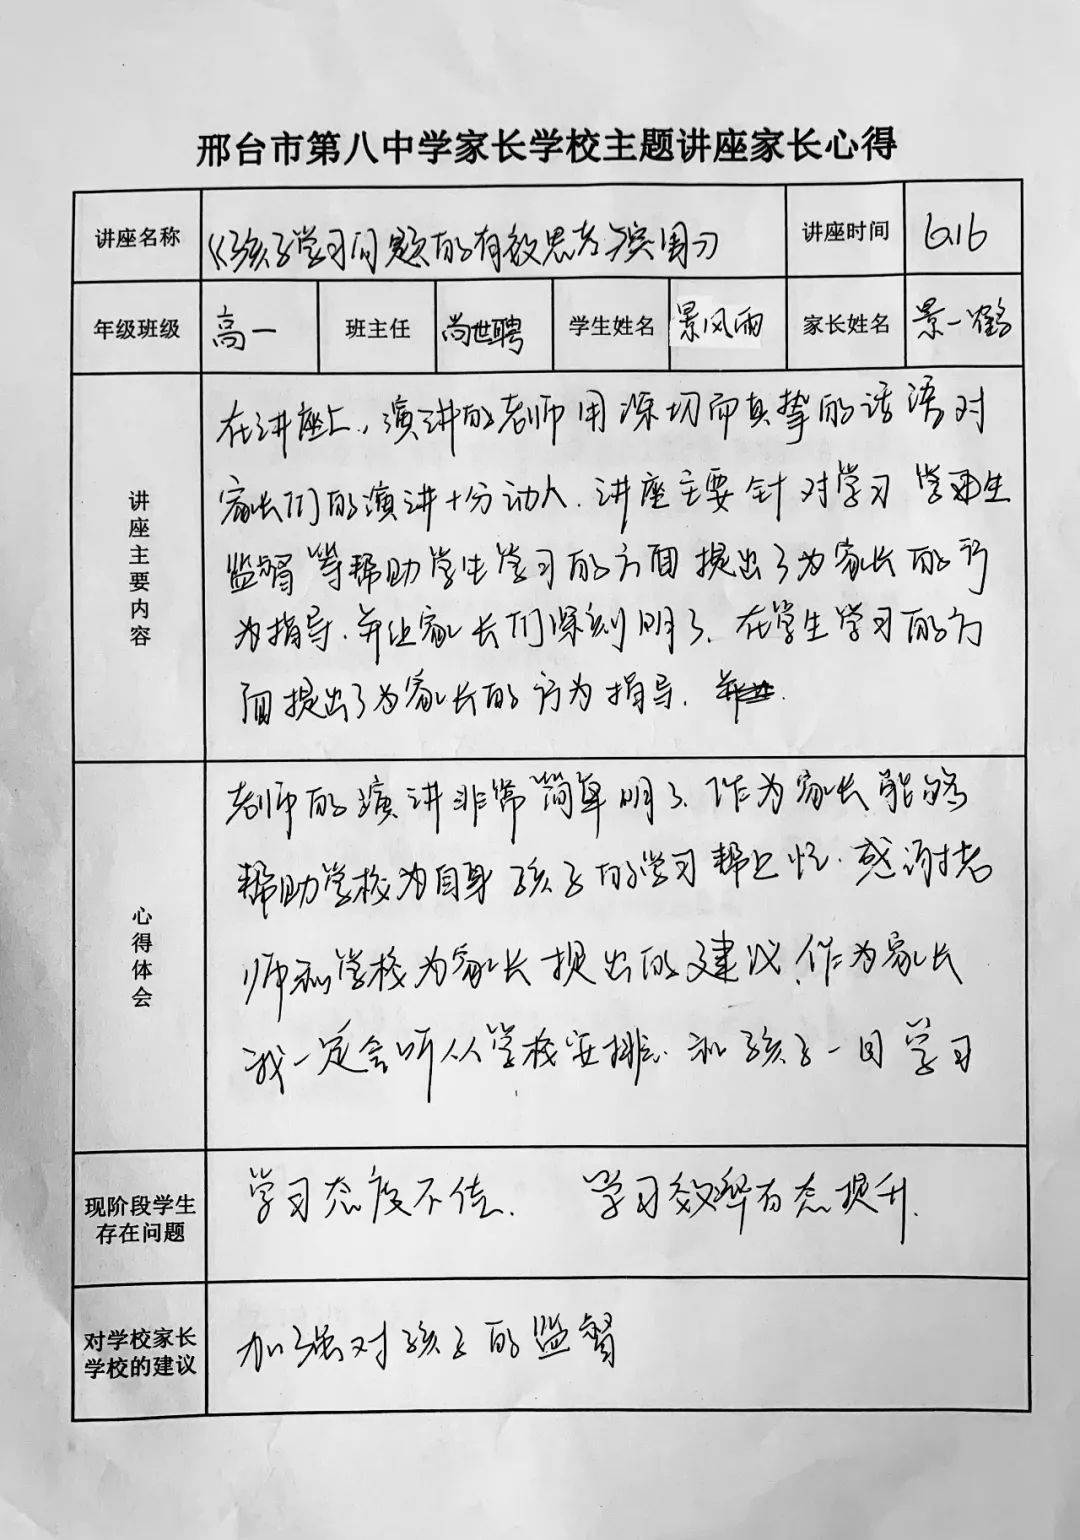 邢台市第八中学家长学校主题讲座家长心得
讲座名称 《孩子学习问题的有效思考与实用》 讲座时间 6.16
年级班级 高一 班主任 尚世聘 学生姓名 景风雨 家长姓名 景一鹤
讲座主要内容
在讲座上,演讲的老师用深切而真挚的话语对
家长们的演讲十分动人.讲座主要针对学习 学生
监督等帮助学生学习的方面提出了为家长的行
为指导.并让家长们深刻明了.在学生学习的方
面提出了为家长的行为指导.
心得体会
老师的演讲非常简单明了.作为家长能够
帮助学校为自身孩子的学习帮上忙.感谢老
师和学校为家长提出的建议.作为家长
我一定会听从学校安排.和孩子一同学习
现阶段学生
存在问题
学习态度不佳. 学习效率有态提升.
对学校家长
学校的建议
加强对孩子的监督